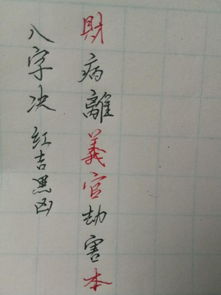 財病離義官劫害本
八字决 红吉黑凶